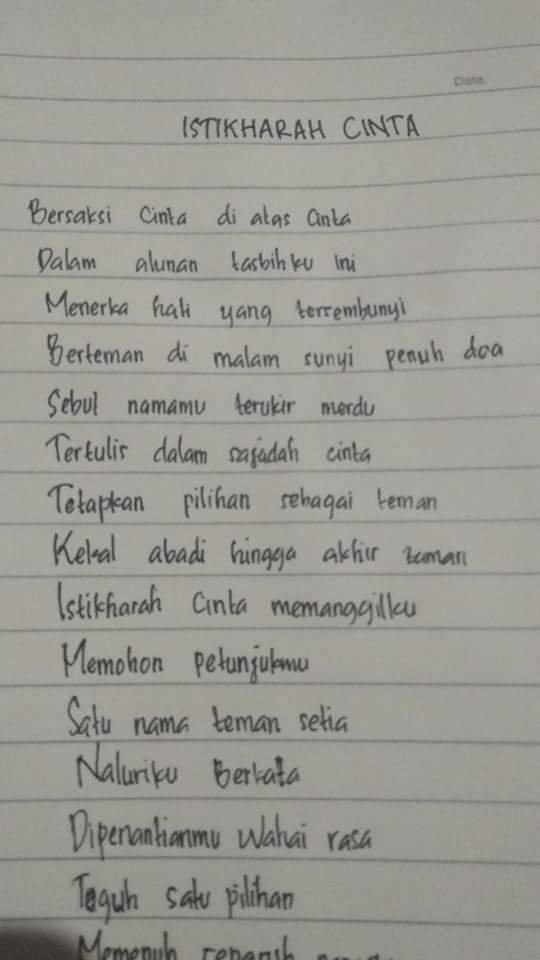 Date.
ISTIKHARAH CINTA
Bersaksi Cinta di atas Cinta
Dalam alunan tasbihku ini
Menerka hati yang tersembunyi
Berteman di malam sunyi penuh doa
Sebut namamu terukir merdu
Tertulis dalam sajadah cinta
Tetapkan pilihan sebagai teman
Kekal abadi hingga akhir zaman
Istikharah Cinta memanggilku
Memohon petunjukmu
Satu nama teman setia
Naluriku Berkata
Dipenantianmu Wahai rasa
Teguh satu pilihan
Memenuh separuh